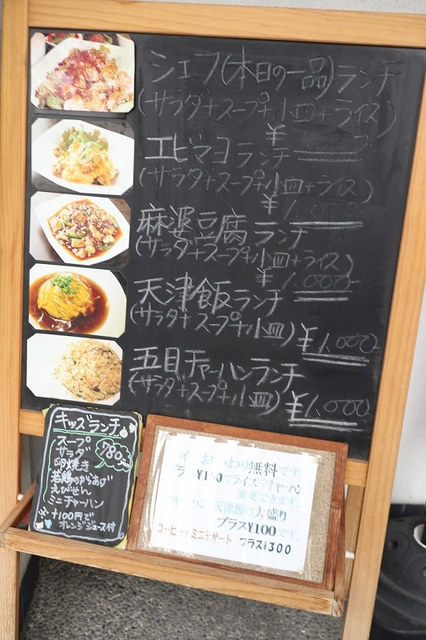 シェフ(本日の一品)ランチ
(サラダ+スープ+小皿+ライス)
¥
エビマヨランチ
(サラダ+スープ+小皿+ライス)
¥1,
麻婆豆腐ランチ
(サラダ+スープ+小皿+ライス)
¥1,000
天津飯ランチ
(サラダ+スープ+小皿)¥1,000
五目チャーハンランチ
(サラダ+スープ+小皿)¥1,000
キッズランチ
780
スープ
サラダ
卵焼き
若鶏のからあげ
えびせん
ミニチャーハン
+100円で
オレンジジュース付
おかわり無料です。
¥100でライス→チャーハン
変更できます。
チャーハン・天津飯の大盛り
プラス¥100です。
コーヒー・ミニデザート プラス¥300